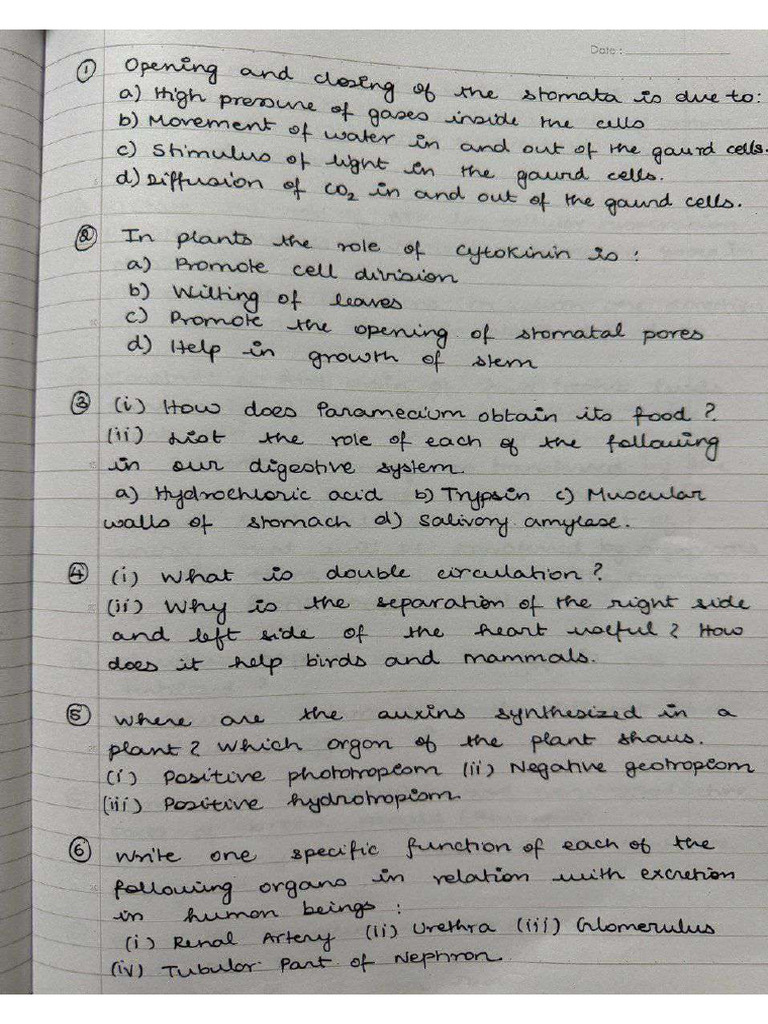 Date :
① Opening and closing of the stomata is due to:
a) High pressure of gases inside the cells
b) Movement of water in and out of the gaurd cells.
c) Stimulus of light in the gaurd cells.
d) Diffusion of CO₂ in and out of the gaurd cells.
② In plants the role of cytokinin is :
a) Promote cell division
b) Wilting of leaves
c) Promote the opening of stomatal pores
d) Help in growth of stem
③ (i) How does Paramecium obtain its food ?
(ii) List the role of each of the following
in our digestive system.
a) Hydrochloric acid b) Trypsin c) Muscular
walls of stomach d) Salivory amylase.
④ (i) What is double circulation ?
(ii) Why is the separation of the right side
and left side of the heart useful ? How
does it help birds and mammals.
⑤ Where are the auxins synthesized in a
plant ? Which organ of the plant shows.
(i) Positive phototropism (ii) Negative geotropism
(iii) Positive hydrotropism.
⑥ Write one specific function of each of the
following organs in relation with excretion
in human beings :
(i) Renal Artery (ii) Urethra (iii) Glomerulus
(iv) Tubular Part of Nephron.